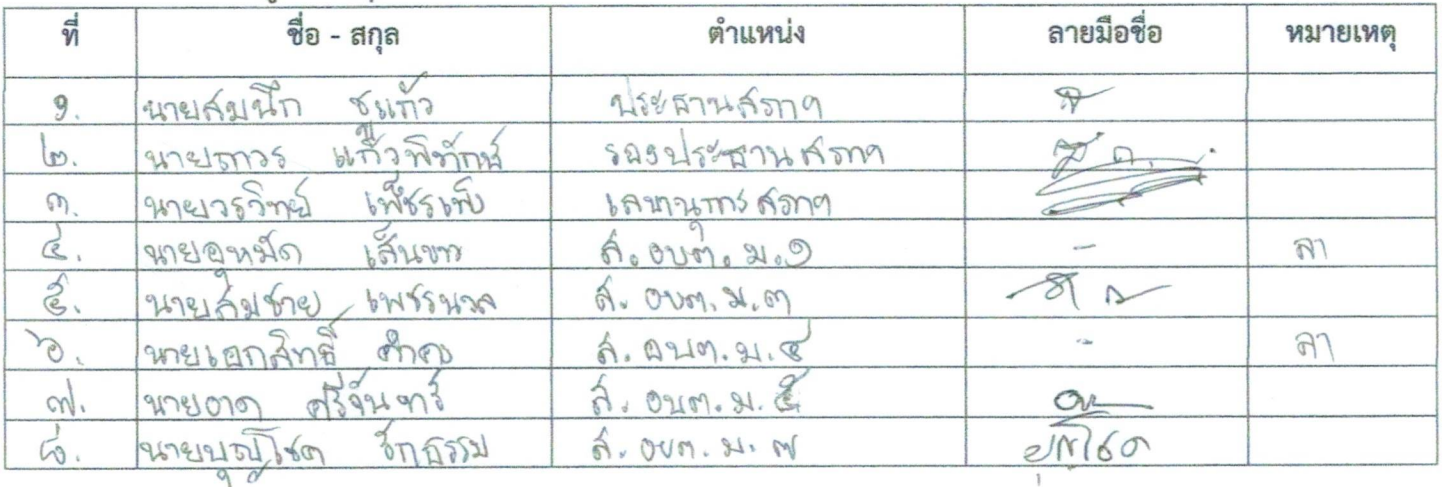 ที่ ชื่อ - สกุล ตำแหน่ง ลายมือชื่อ หมายเหตุ
๑. นายสมนึก ชูแก้ว ประธานสภาฯ
๒. นายถาวร แก้วพิทักษ์ รองประธานสภาฯ
๓. นายวรวิทย์ เพ็ชรเพ็ง เลขานุการสภาฯ
๔. นายอุหมัด เส็นขาว ส.อบต.ม.๑ - ลา
๕. นายสมชาย เพชรนวล ส.อบต.ม.๓
๖. นายเอกสิทธิ์ ส.อบต.ม.๔ - ลา
๗. นายอาด ศรีจันทร์ ส.อบต.ม.๕
๘. นายบุญโชค รักธรรม ส.อบต.ม.๗ บุญโชค